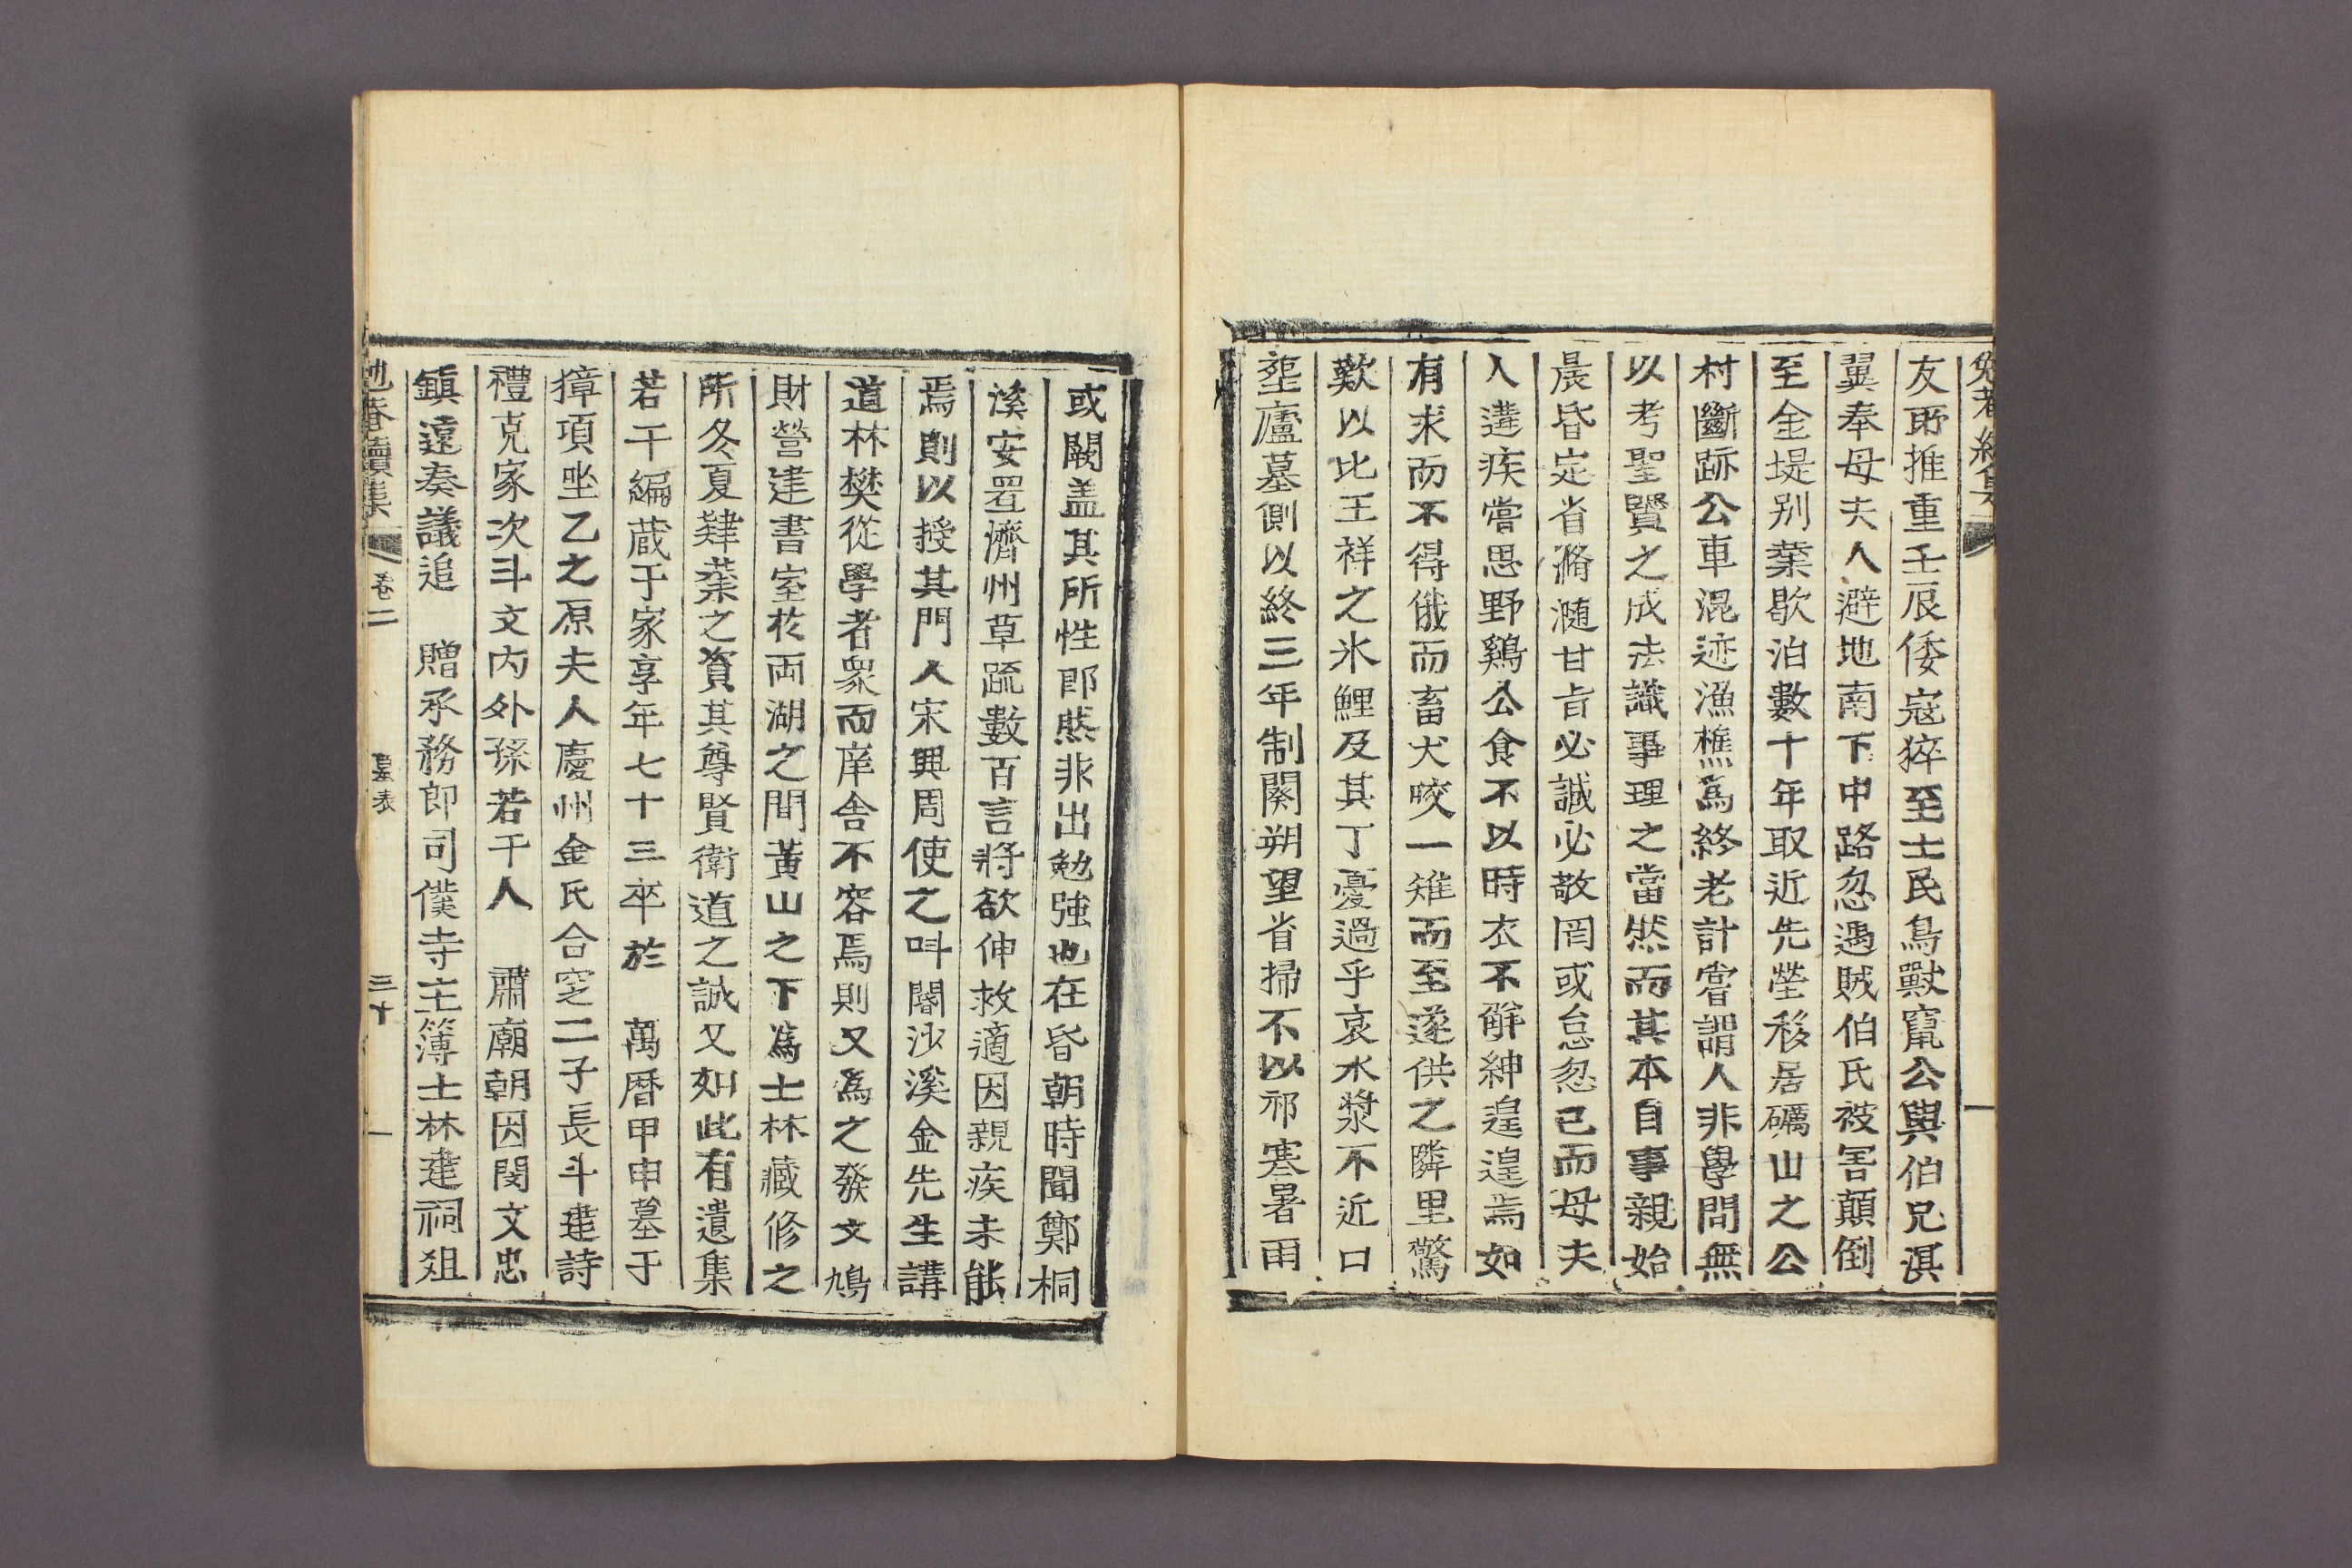 友所推重壬辰倭寇猝至士民鳥獸竄公與伯兄淇
翼奉母夫人避地南下中路忽遇賊伯氏被害顛倒
至金堤別業歇泊數十年取近先塋移居礪山之公
村斷跡公車混迹漁樵為終老計嘗謂人非學問無
以考聖賢之成法識事理之當然而其本自事親始
晨昏定省滫瀡甘旨必誠必敬罔或怠忽已而母夫
人遘疾嘗思野鷄公食不以時衣不解紳遑遑焉如
有求而不得俄而畜犬咬一雉而至遂供之隣里驚
歎以比王祥之氷鯉及其丁憂過乎哀水漿不近口
塟廬墓側以終三年制闋朔望省掃不以祁寒暑雨
或闕盖其所性郎然非出勉強也在昏朝時聞鄭桐
溪安置濟州草䟽數百言將欲伸救適因親疾未能
焉則以授其門人宋興周使之呌閽沙溪金先生講
道林樊從學者衆而庠舍不容焉則又為之發文鳩
財營建書室於両湖之間黃山之下為士林藏修之
所冬夏肄業之資其尊賢衛道之誠又如此有遺集
若干編蔵于家享年七十三卒於　萬曆甲申墓于
獐項坐乙之原夫人慶州金氏合窆二子長斗建詩
禮克家次斗文內外孫若干人　肅廟朝因閔文忠
鎮遠奏議追　贈承務郎司僕寺主簿士林建祠爼
續集
卷二
墓表
三十